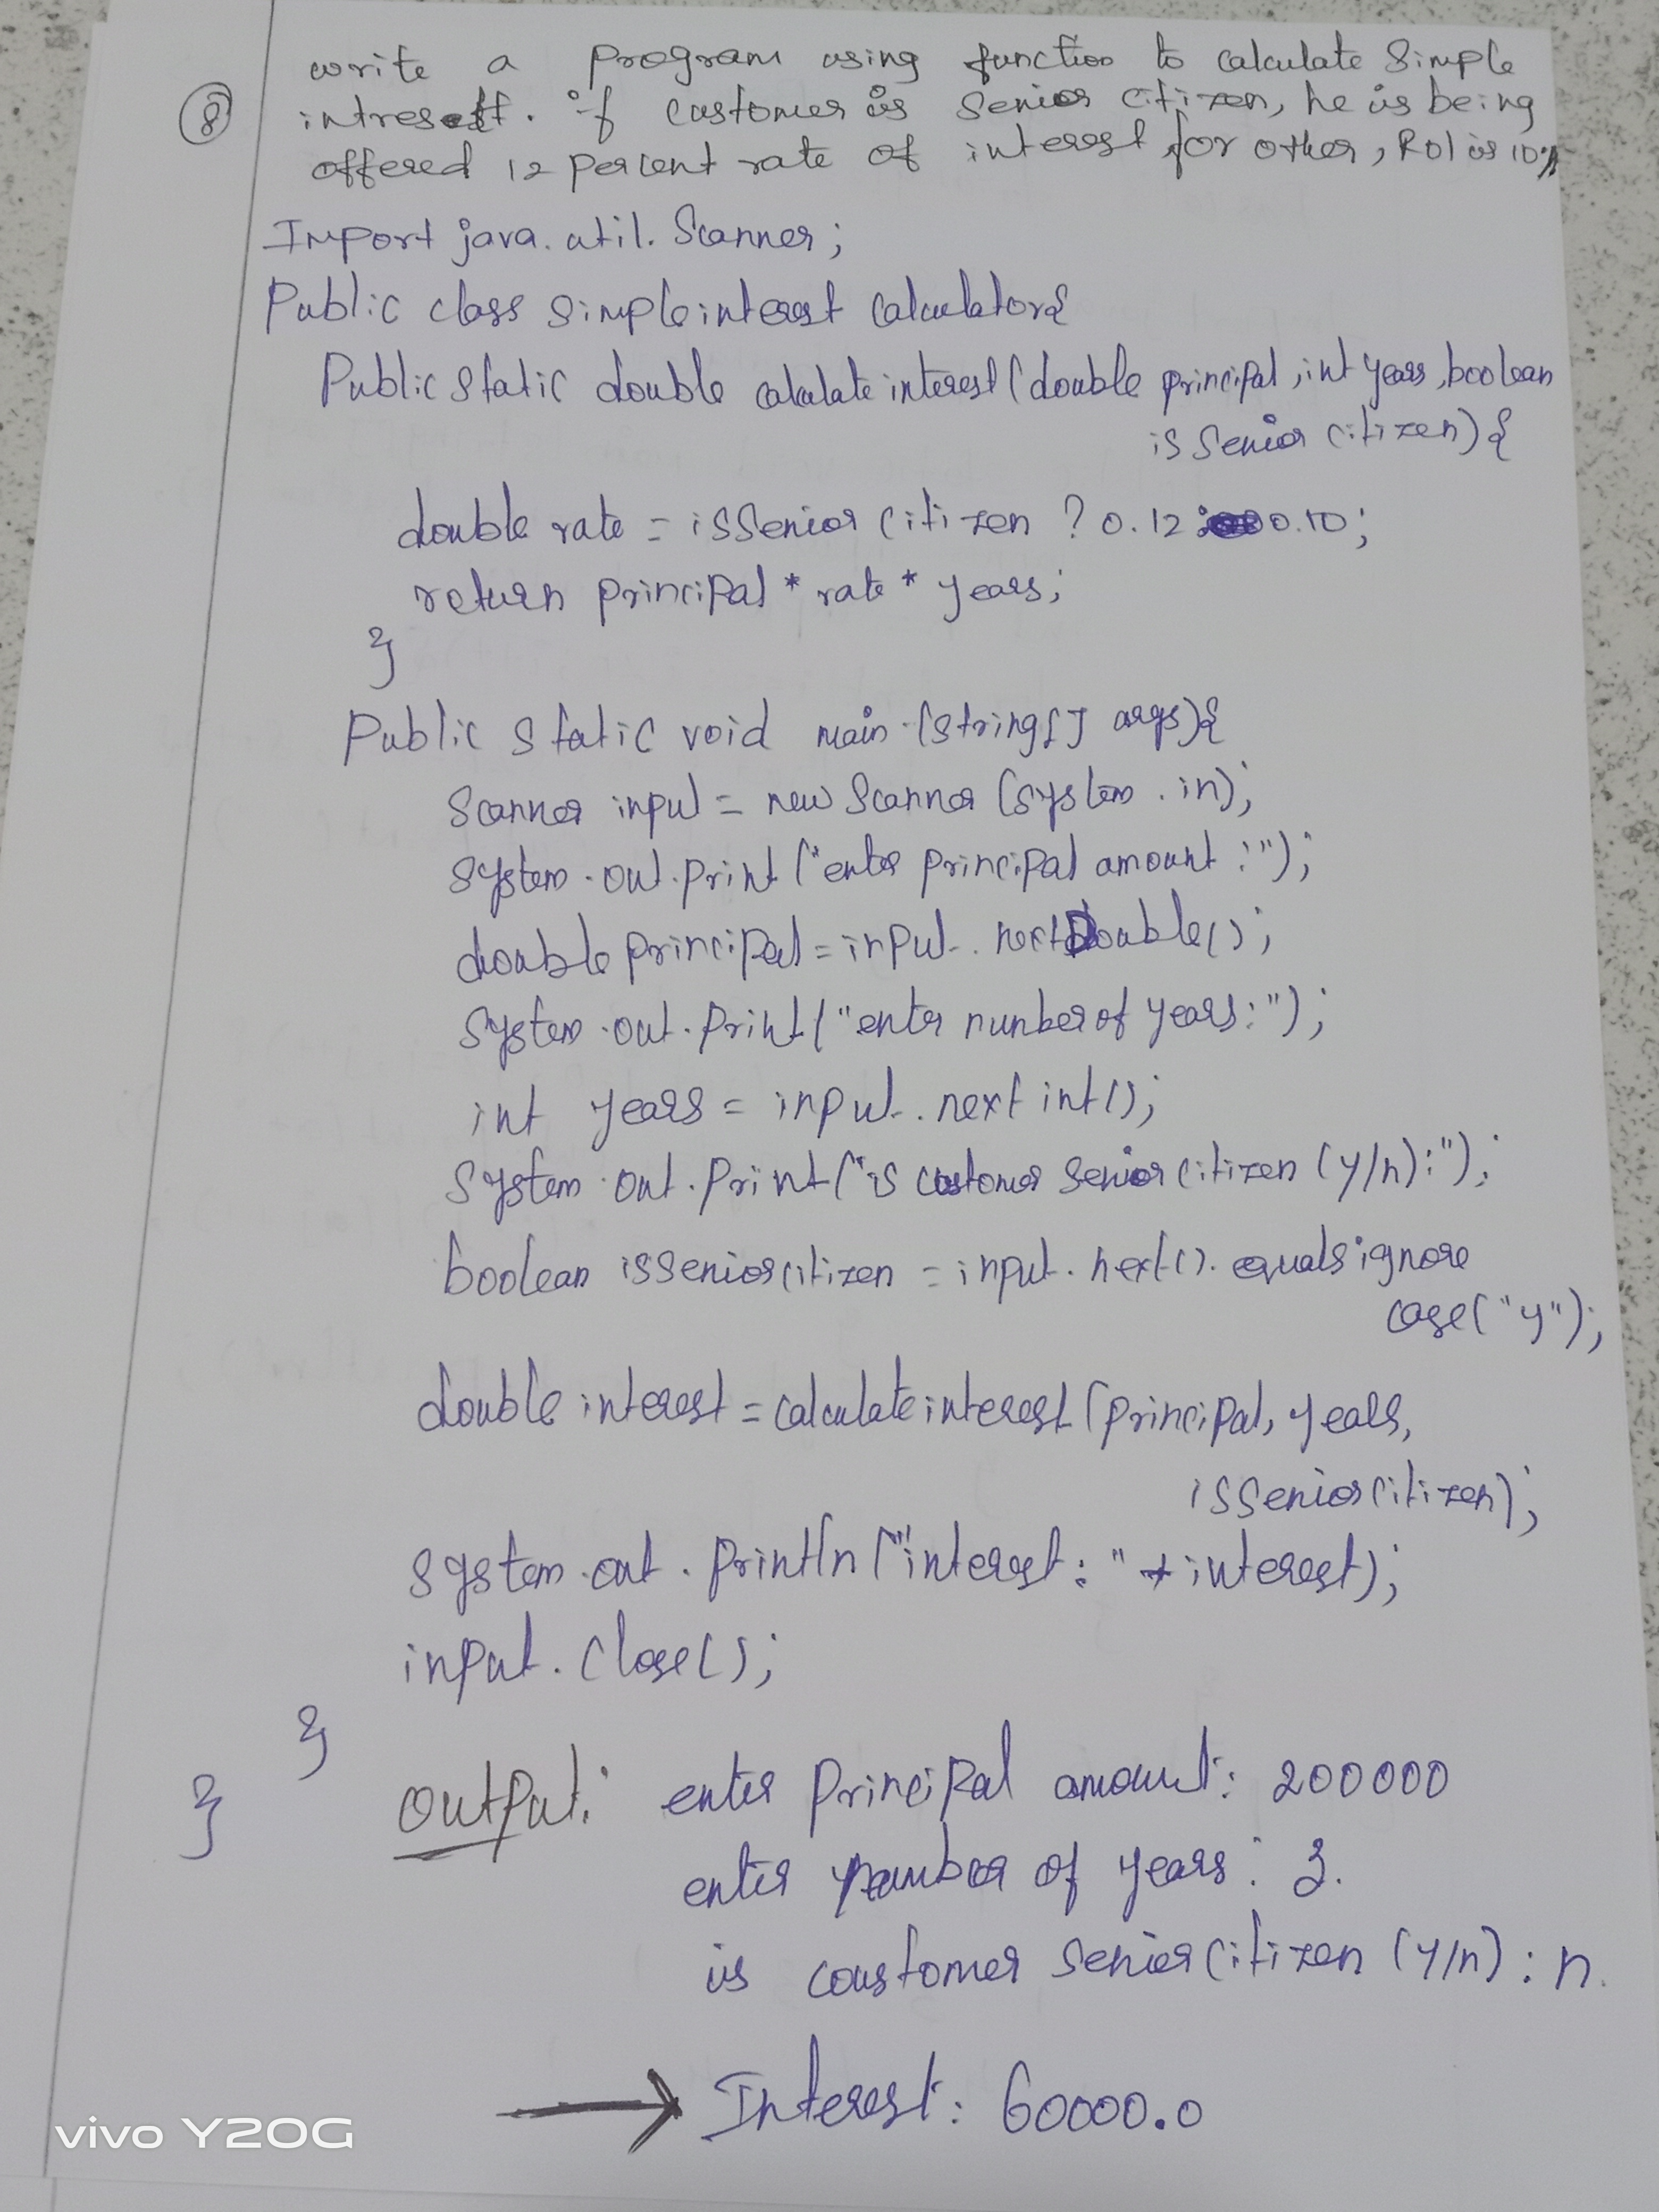 8
write a program using function to calculate Simple
intresest. if customer is Senior citizen, he is being
offered 12 percent rate of interest for other, ROI is 10%
Import java.util.Scanner;
Public class simpleinterest calculator{
Public static double calculate interest (double principal, int years, boolean
is Senior citizen) {
double rate = isSenior citizen ? 0.12 : 0.10;
return principal * rate * years;
}
Public static void main (string[] args){
Scanner input = new Scanner (system.in);
system.out.print ("enter principal amount:");
double principal = input.nextDouble();
system.out.print("enter number of years:");
int years = input.next int();
System.out.print("is customer senior citizen (y/n):");
boolean isseniorcitizen = input.next().equals ignore
case("y");
double interest = calculate interest (principal, years,
isSenior citizen);
system.out.println("interest: " + interest);
input.close();
}
}
output: enter principal amount: 200000
enter number of years: 3.
is coustomer senior citizen (y/n): n.
→ Interest: 60000.0
vivo Y20G